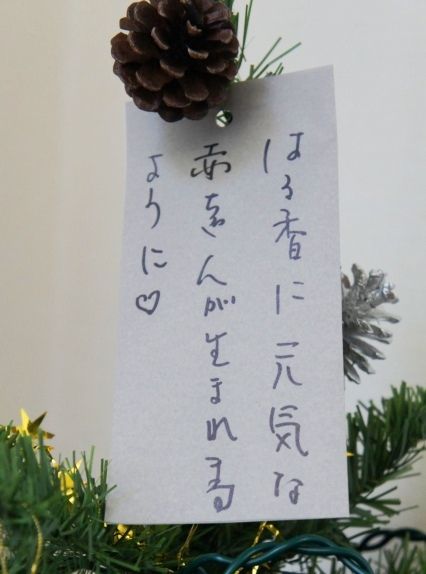 はる香に元気な
赤ちゃんが生まれる
ように♡